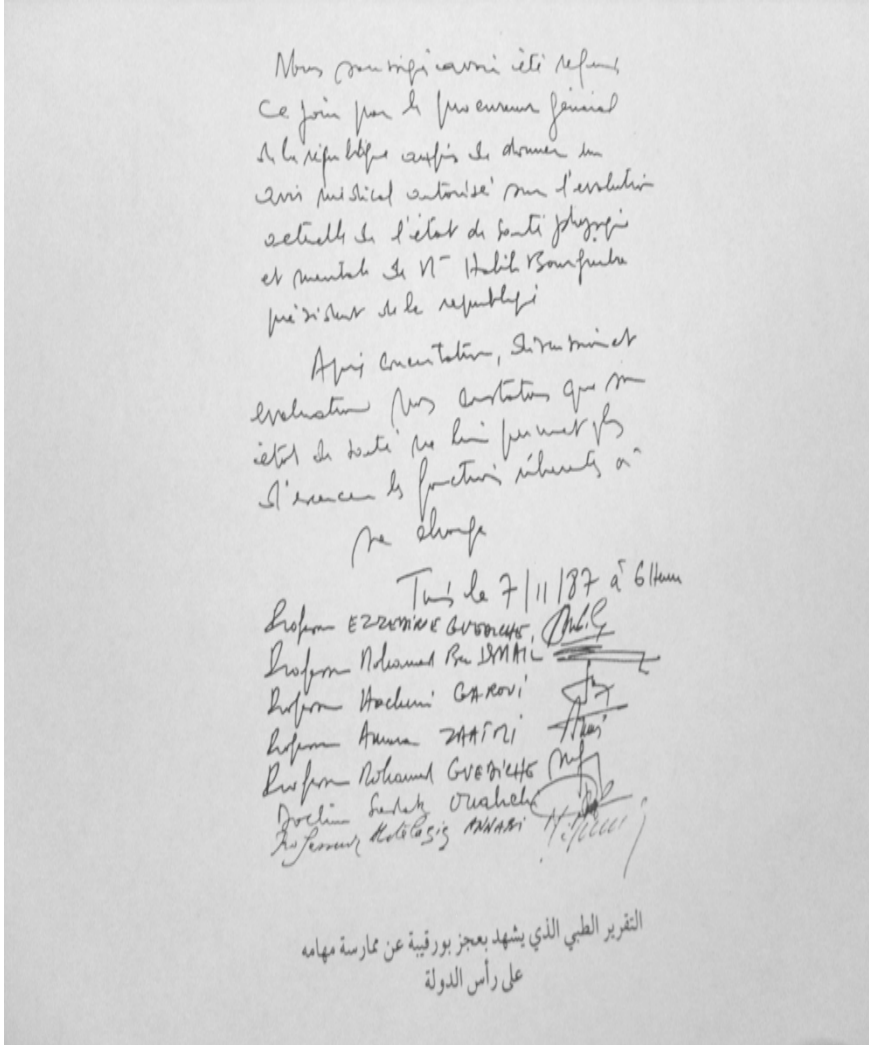 Nous soussignés avoir été requis
Ce jour par le procureur général
de la république aux fins de donner un
avis médical autorisé sur l'évolution
actuelle de l'état de santé physique
et mentale de Mr Habib Bourguiba
président de la république
Après concertation, discussion et
évaluation nous constatons que son
état de santé ne lui permet plus
d'exercer les fonctions inhérentes à
sa charge
Tunis le 7/11/87 à 6 Heures
Professeur EZZEDINE GUEDICHE
Professeur Mohamed Ben ISMAIL
Professeur Hachemi GAROUI
Professeur Amara ZAATRI
Professeur Mohamed GUEDICHE
Docteur Sadok Ouahchi
Professeur ANNABI
التقرير الطبي الذي يشهد بعجز بورقيبة عن ممارسة مهامه
على رأس الدولة